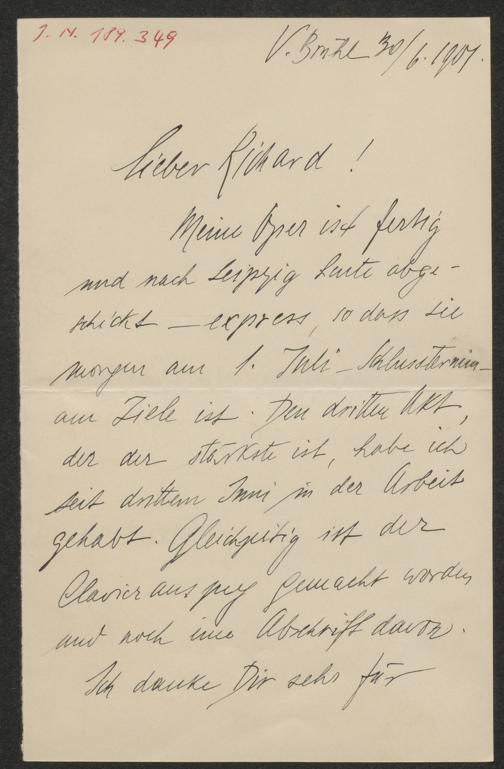 J. N. 184.349
V. Brühl 30/6. 1901.
Lieber Richard!
Meine Oper ist fertig
und nach Leipzig heute abge-
schickt – express, so dass sie
morgen am 1. Juli – Schlusstermin –
am Ziele ist. Den dritten Akt,
der der stärkste ist, habe ich
seit drittem Juni in der Arbeit
gehabt. Gleichzeitig ist der
Clavierauszug gemacht worden
und noch eine Abschrift davon.
Ich danke Dir sehr für